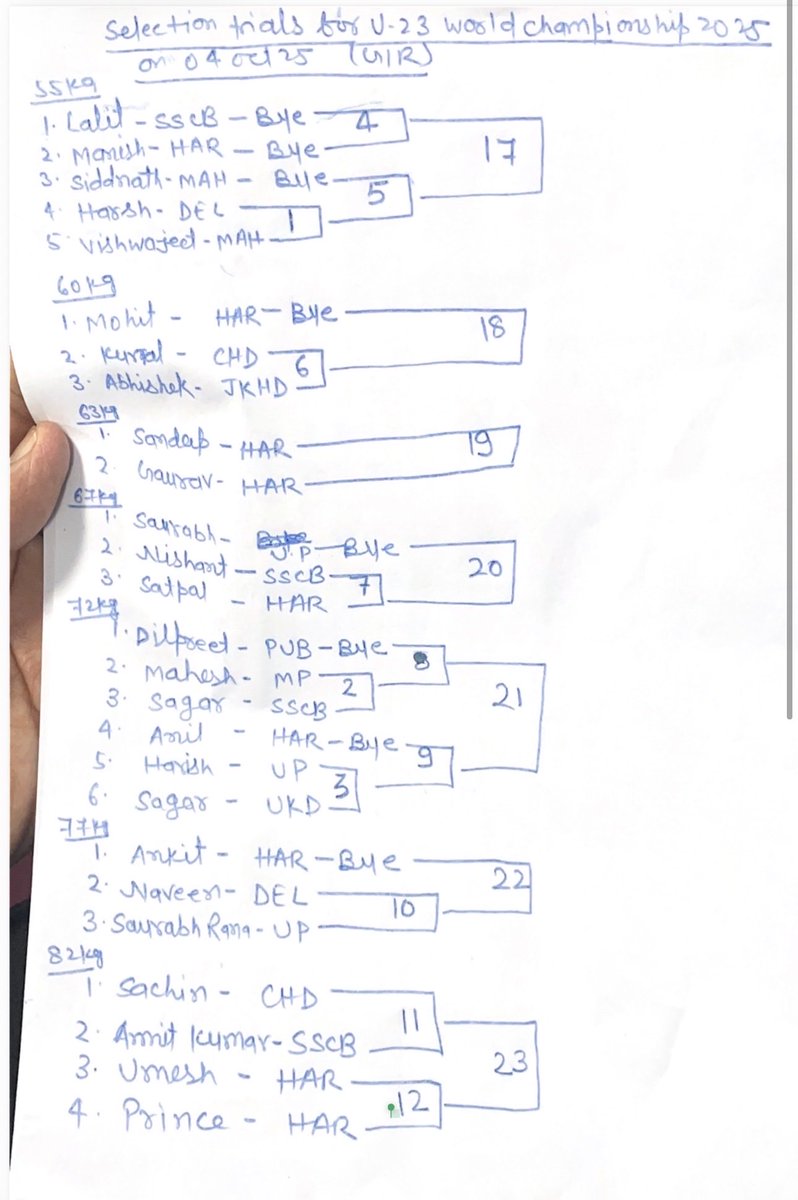 Selection trials for U-23 world championship 2025
on 04 oct 25 (G/R)
55Kg
1. Lalit - SSCB - Bye 4
17
2. Manish - HAR - Bye
3. Siddnath - MAH - Bye 5
4. Harsh - DEL 1
5. Vishwajeet - MAH
60Kg
1. Mohit - HAR - Bye 18
2. - CHD 6
3. Abhishek - JKHD
63Kg
1. Sandeep - HAR 19
2. Gaurav - HAR
67Kg
1. Saurabh - UP - Bye
2. Nishant - SSCB 7 20
3. Satpal - HAR
72Kg
1. Dilpreet - PUB - Bye 8
2. Mahesh - MP 2 21
3. Sagar - SSCB
4. Anil - HAR - Bye 9
5. Harish - UP 3
6. Sagar - UKD
77K
1. Ankit - HAR - Bye 22
2. Naveen - DEL 10
3. Saurabh Rana - UP
82Kg
1. Sachin - CHD 11
2. Amit Kumar - SSCB 23
3. Umesh - HAR
4. Prince - HAR 12